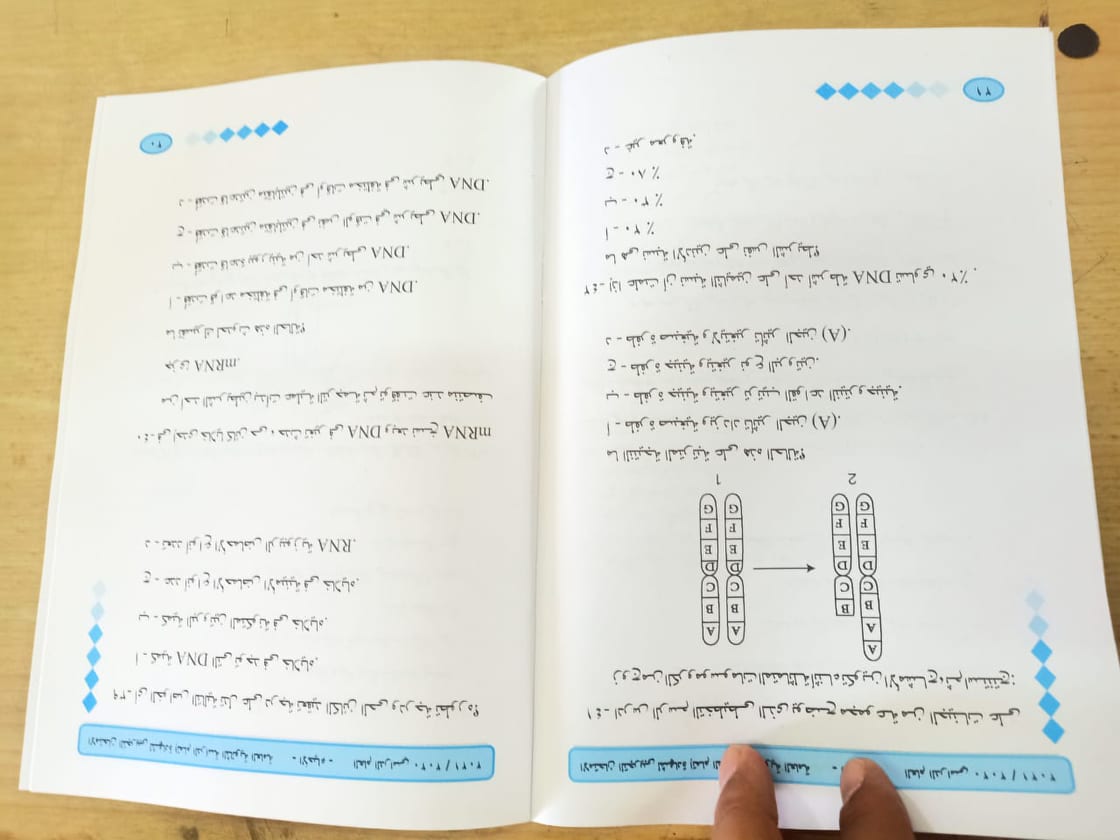 الامتحان التجريبى لشهادة إتمام الدراسة الثانوية العامة - الأحياء - العام الدراسي ٢٠٢٠ / ٢٠٢١
٣٩- أى الخواص التالية تدل على درجة تعقيد الكائن الحى ودرجة تطوره؟
أ - كمية DNA التى توجد فى خلاياه.
ب - كمية البروتين المتكونة فى خلاياه.
ج - عدد أنواع الأحماض الأمينية فى خلاياه.
د - تعدد أنواع الأحماض الريبوزية RNA.
٤٠- فى إحدى خلايا كائن حى ، حدث تغير فى DNA وبعد نسخ mRNA
من أحد الشريطين بدأت عملية الترجمة ثم توقفت عند منتصف
جزئ mRNA.
ما تفسيرك لحدوث هذه الحالة؟
أ - فُقدت قواعد مختلفة فى أوقات مختلفة من DNA.
ب - فُقدت قاعدة بيورينية من أحد شريطى DNA.
ج - فُقدت قاعدتين متقابلتين فى نفس الوقت في شريطى DNA.
د - فُقدت قاعدتين متقابلتين فى أوقات مختلفة فى شريطي DNA.
٢٠
الامتحان التجريبى لشهادة إتمام العامة - العام الدراسي ٢٠٢٠ / ٢٠٢١
٤١- ادرس الرسم التخطيطى الذى يوضح مجموعة من الجينات على
زوج من الكروموسومات المتماثلة أثناء تكوين الأمشاج، ثم استنتج:
A A B C D E F G
B C D E F G
2
A B C D E F G
A B C D E F G
1
ما النتيجة المترتبة على هذه الحالة؟
أ - طفرة صبغية ويزداد تأثير الجين (A).
ب - طفرة جينية ويتغير ترتيب القواعد النيتروجينية.
ج - طفرة جينية ويتغير نوع البروتين.
د - طفرة صبغية ولايتغير تأثير الجين (A).
٤٢- إذا علمت أن نسبة الثايمين على أحد أشرطة DNA تساوي ٢٠٪ .
ما هى نسبة الأدنين على نفس الشريط؟
أ - ٢٠ ٪
ب - ٣٠ ٪
ج - ٨٠ ٪
د - غير معروفة.
٢١